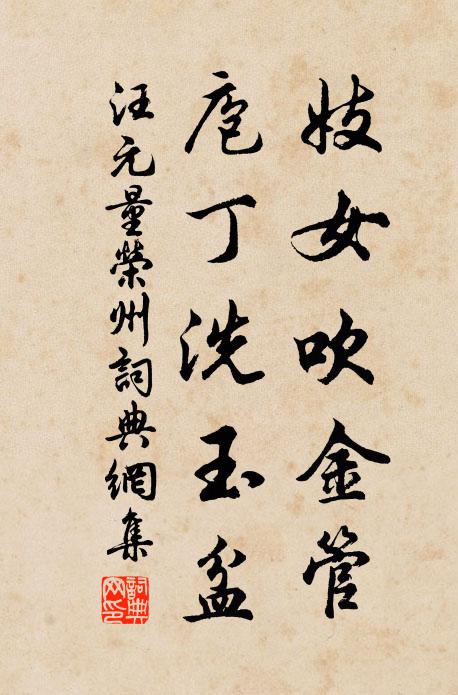 妓女吹金管
庖丁洗玉盆
汪元量榮州詞典網集
詞典
网印